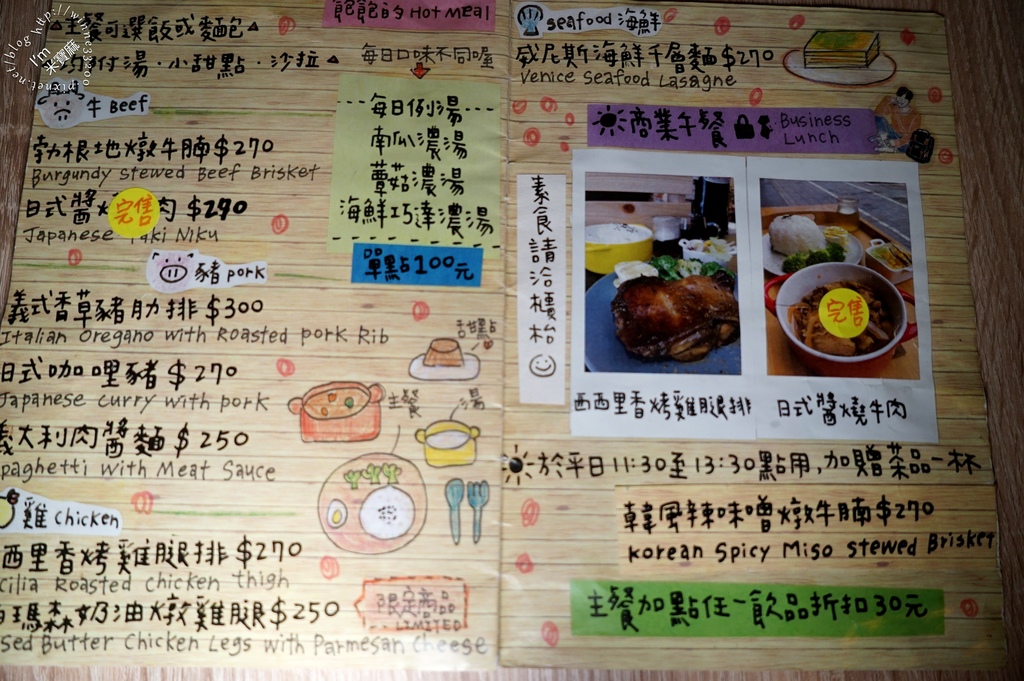 飽飽的 Hot Meal
△主餐可選飯或麵包△
附湯·小甜點·沙拉△
每日口味不同喔
牛 Beef
勃根地燉牛腩 $270
Burgundy Stewed Beef Brisket
日式醬 完售 肉 $290
Japanese Yaki Niku
每日例湯
南瓜濃湯
蕈菇濃湯
海鮮巧達濃湯
單點100元
豬 pork
義式香草豬肋排 $300
Italian Oregano with Roasted pork Rib
日式咖哩豬 $270
Japanese curry with pork
義大利肉醬麵 $250
paghetti with Meat Sauce
甜點
主餐
湯
雞 chicken
西西里香烤雞腿排 $270
cilia Roasted chicken thigh
瑪森奶油燉雞腿 $250
sed Butter Chicken Legs with Parmesan Cheese
限定商品
LIMITED
seafood 海鮮
威尼斯海鮮千層麵 $270
Venice Seafood Lasagne
商業午餐 Business
Lunch
素食請洽櫃枱
完售
西西里香烤雞腿排
日式醬燒牛肉
於平日11:30至13:30點用,加贈茶品一杯
韓風辣味噌燉牛腩 $270
Korean Spicy Miso Stewed Brisket
主餐加點任一飲品折扣30元